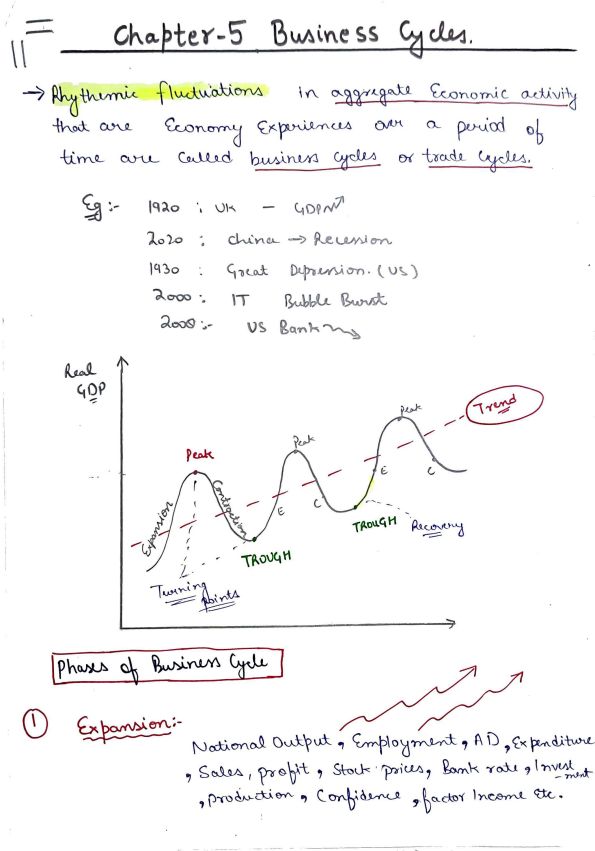 Chapter-5 Business Cycles.
→ Rhythemic fluctuations in aggregate Economic activity
that are Economy Experiences over a period of
time are called business cycles or trade Cycles.
Eg:- 1920 : UK – GDP
2020 : China → Recession
1930 : Great Depression. (US)
2000 : IT Bubble Burst
2008 :- US Bank
Real
GDP
Trend
Peak
Peak
Peak
Expansion
Contraction
E
C
E
C
TROUGH
TROUGH
Recovery
Turning
points
Phases of Business Cycle
① Expansion:-
National Output, Employment, AD, Expenditure
, Sales, profit, Stock prices, Bank rate, Invest
-ment
, production, Confidence, factor Income etc.